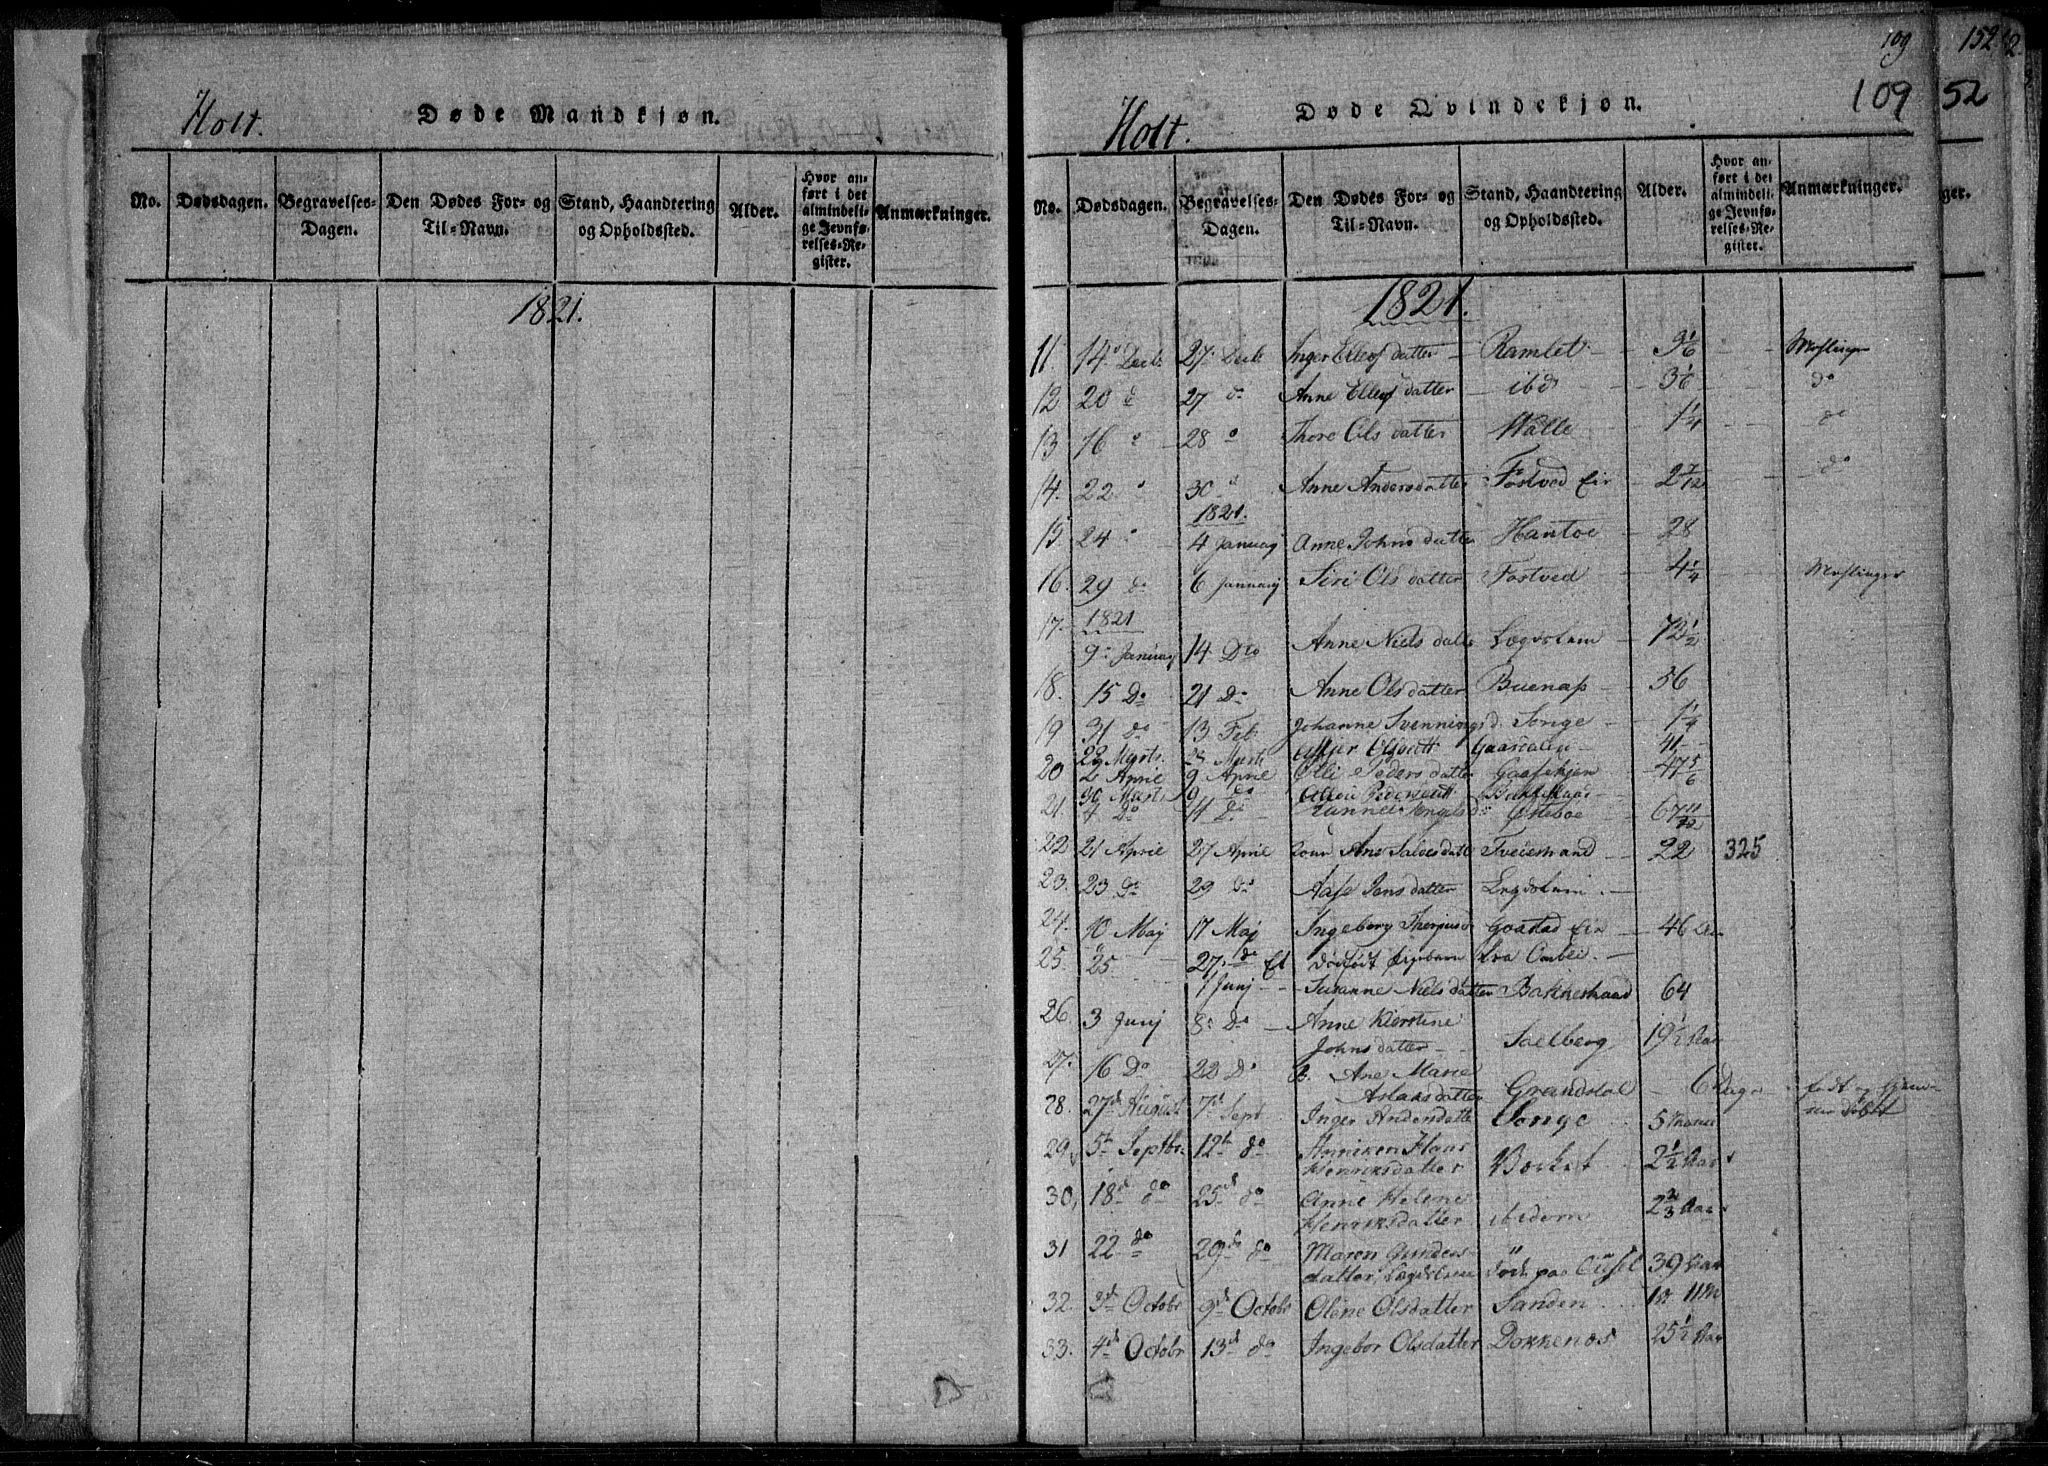 Holt.
Døde Mandkjøn.
No.
Dødsdagen.
Begravelses-Dagen.
Den Dødes For- og Til-Navn.
Stand, Haandtering og Opholdssted.
Alder.
Hvor anført i det almindelige Jevnførelses-Register.
Anmærkninger.
1821.
109
152
109
52
Holt.
Døde Qvindekjøn.
No.
Dødsdagen.
Begravelses-Dagen.
Den Dødes For- og Til-Navn.
Stand, Haandtering og Opholdssted.
Alder.
Hvor anført i det almindelige Jevnførelses-Register.
Anmærkninger.
1821.
11. 14 Decb. 27. Decb Inger Ellefsdatter Ramlet Mæslinger
12 20 d 27 do Anne Ellefsdatter ibd do
13 16 28 Thore Olsdatter Walle 1 1/4 do
14. 22 30 Anne Andersdatter Fostved Eir 2 7/12 do
1821.
15 24 4 January Anne Johnsdatter Hantoe 28
16. 29 do 6 January Siri Olsdatter Fostved 4 1/4 Mæslinger
17. 1821
9 January 14 Dto Anne Nielsdatt Lægdslem 72 1/2
18. 15 Do 21 Do Anne Olsdatter Buenæss 56
19 31 do 13 Feb Johanne Svenningsd. Songe 1 1/4
22 Marts 41
20 2 April 9 April Olli Pedersdatter 47 5/6
30 Marts 9 do
21. 7 Do 11 Do Østeboe 67 11/12
22 21 April 27 April Ane Salvesdatt Tvedestrand 22 325
23. 23 do 29 do Aase Jensdatter Legdslem
24. 10 Maj 17 Maj Ingeborg Gaastad Eir 46
25. 25 27 do Et dødfødt fra
1 Junj Susanne Nielsdatter Bakkestraad 64
26 3 Junj 8 Do Anne Kierstine
Johnsdatter Sælberg 19 1/2 Aar
27. 16 Do 22 Do Ane Marie
Aslaksdatter Grændstøl 6 Dage født og
28. 27d August 7d Sept Inger Andersdatter Songe 5
29 5t Septbr. 12te do Anniken
Henriksdatter 2 1/2 Aar
30, 18d do 25d do Anne Helene
Henriksdatter ibidem 2 2/3 Aar
31 22 do 29d do Maren Gunders-
datter, Lægdslem død paa 39 Aar
32. 3d Octobr 9d Octobr Olene Olsdatter Sanden
33. 4d Octobr 13d do Ingebor Olsdatter Dokkenæs 25 1/2 Aar